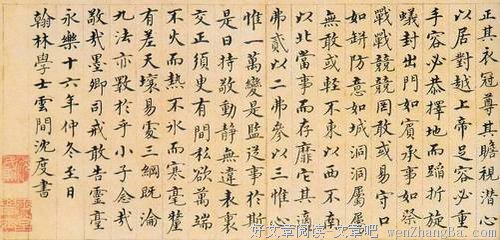 正其衣冠尊其瞻視潛心
以居對越上帝足容必重
手容必恭擇地而蹈折旋
蟻封出門如賓承事如祭
戰戰兢兢罔敢或易守口
如缾防意如城洞洞屬屬
無敢或輕不東以西不南
以北當事而存靡它其適
弗貳以二弗參以三惟心
惟一萬變是監從事於斯
是曰持敬動靜無違表裏
交正須臾有間私欲萬端
不火而熱不冰而寒毫釐
有差天壤易處三綱既淪
九法亦斁於乎小子念哉
敬哉墨卿司戒敢告靈臺
永樂十六年仲冬至日
翰林學士雲間沈度書
好文章阅读-文章吧
wenZhangBa.com